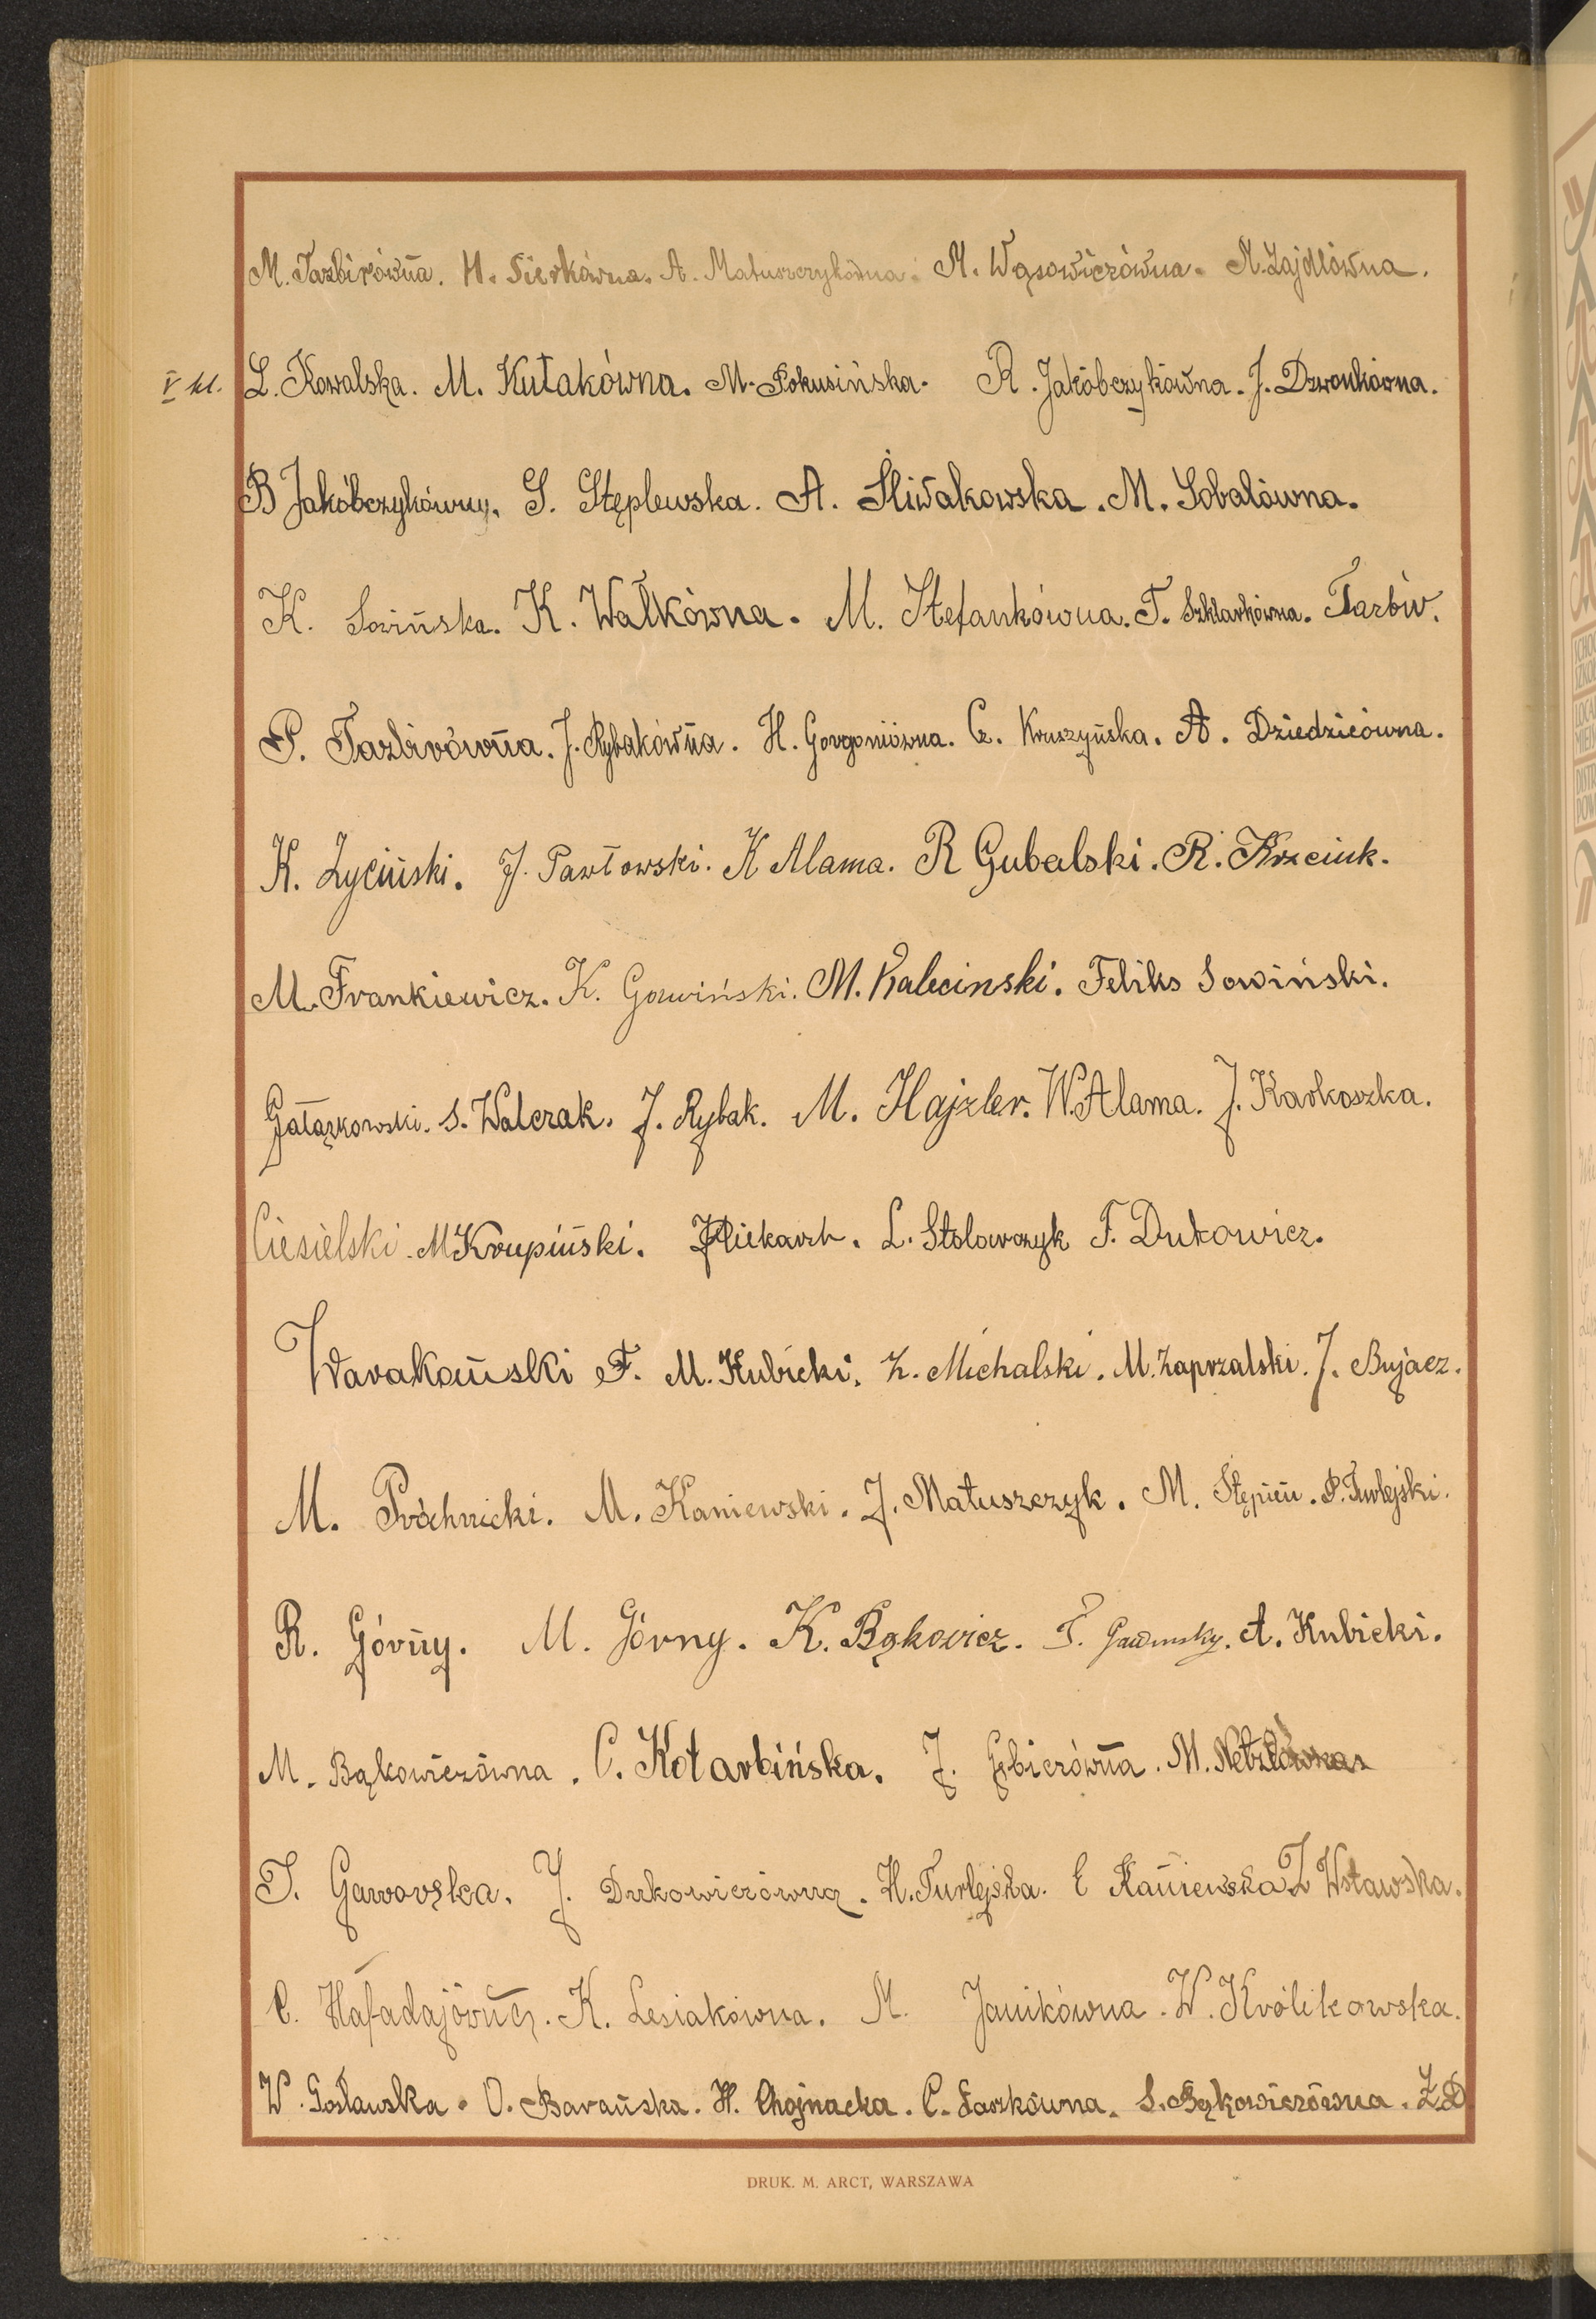 M. Tazbirówna. H. Sierkówna. A. Matuszczykówna. M. Wąsowiczówna. M. Zajdlówna.
V kl. L. Kowalska. M. Kułakówna. M. Pokusińska. R. Jakóbczykówna. J. Dzwonkówna.
B Jakóbczykówny. S. Stęplewska. A. Śliwakowska. M. Sobalówna.
K. Sowińska. K. Wałkówna. M. Stefankówna. T. Szklarkówna. Tarbiw.
P. Tazbirówna. J. Rybakówna. H. Gorgoniówna. Cz. Kruszyńska. A. Dziedzicówna.
K. Życiński. J. Pawłowski. K Alama. R Gubalski. R. Krzciuk.
M. Frankiewicz. K. Gawiński. M. Kalecinski. Feliks Sowiński.
Gałązkowski. S. Walczak. J. Rybak. M. Hajzler. W. Alama. J. Karkoszka.
Ciesielski. M Krupiński. J Piekarz. L. Stolarczyk F. Dukowicz.
Warakomski F. M. Kubicki. Z. Michalski. M. Zaprzalski. J. Bujacz.
M. Próchnicki. M. Kaniewski. J. Matuszczyk. M. Stępień. P. Turlejski.
R. Górny. M. Górny. K. Bąkowicz. T. A. Kubicki.
M. Bąkowiczówna. C. Kotarbińska. J. Gbierówna. M.
T. Gaworska. J. Dukowiczówna. H. Turlejska. E Kaniewska Z Wstawska.
C. Hafadajówna. K. Lesiakówna. M. Janikówna. W. Królikowska.
W. Gosławska. O. Barańska. H. Chojnacka. C. S. Bąkowiczówna. Z. D
DRUK. M. ARCT, WARSZAWA